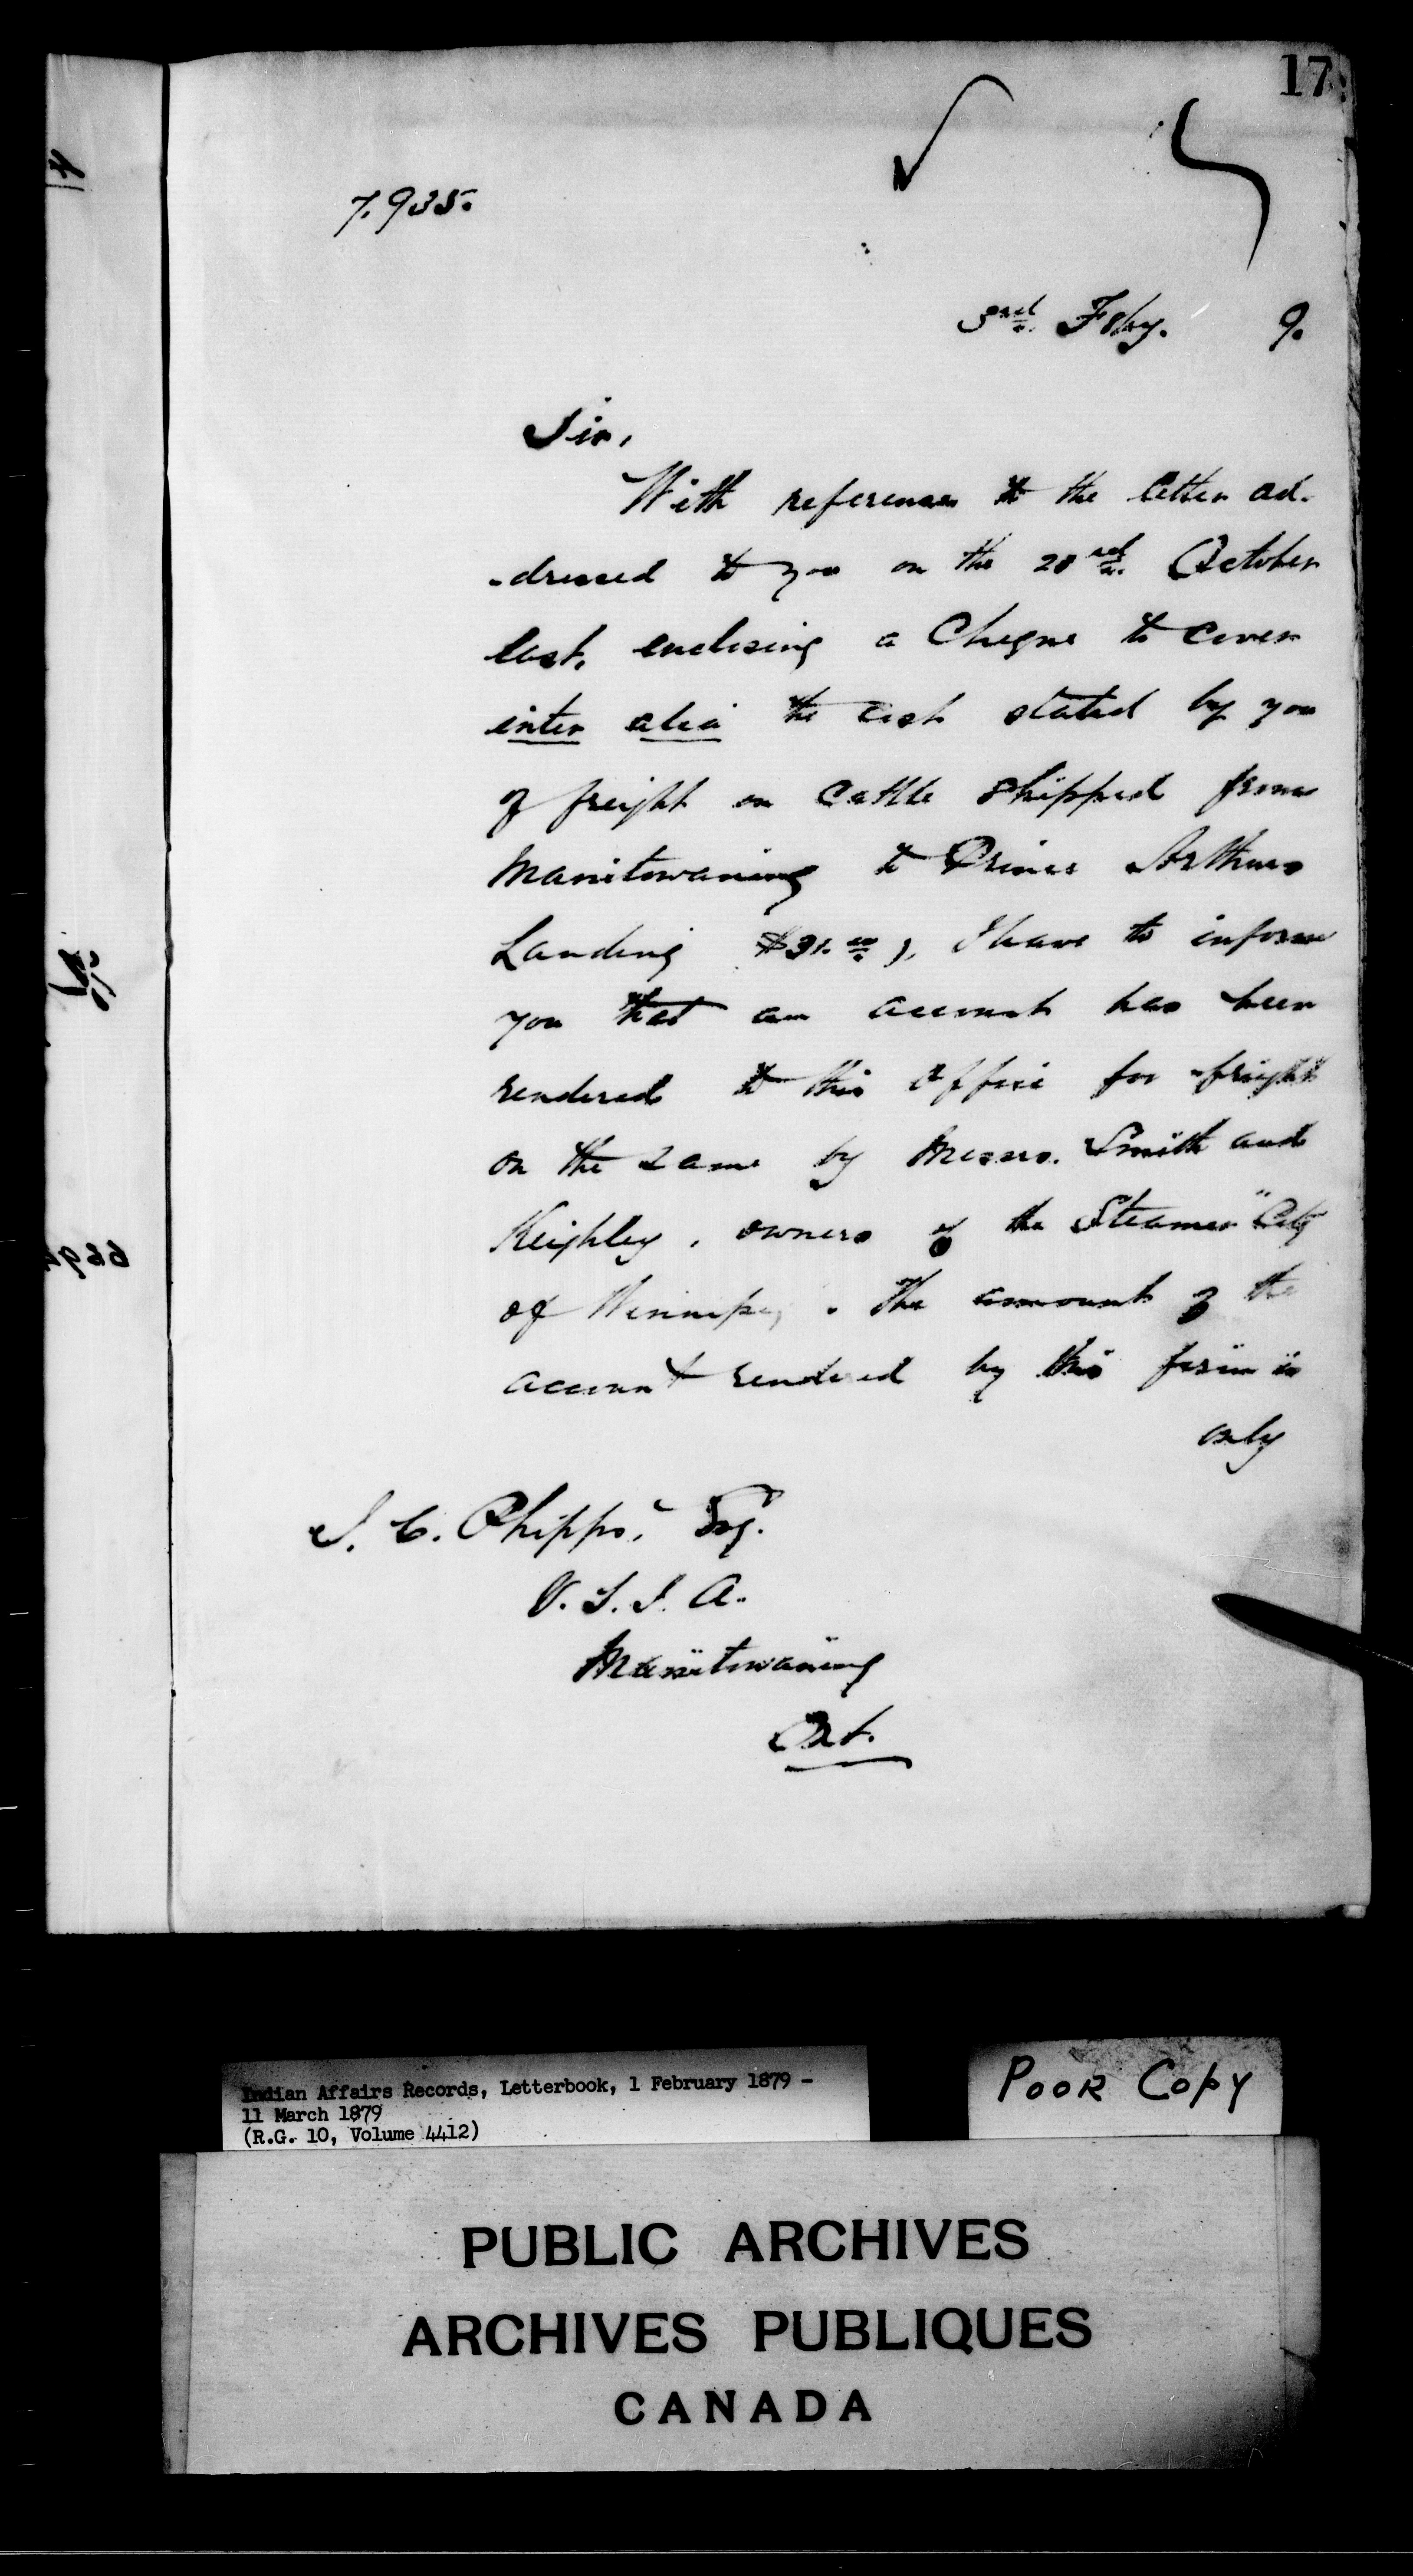 17
7.935.
3rd. Feby. 9.
Sir,
With reference to the letter ad-
-dressed to you on the 23rd. October
last, enclosing a Cheque to cover
inter alia the cost stated by you
of freight on Cattle shipped from
Manitowaning to Prince Arthurs
Landing $31.00), I have to inform
you that an account has been
rendered to this Office for freight
on the same by Messrs. Smith and
Keighley, owners of the Steamer "City
of Winnipeg. The amount of the
account rendered by this firm is
only
J. C. Phipps, Esq.
V. S. I. A.
Manitowaning
Ont.
Indian Affairs Records, Letterbook, 1 February 1879 -
11 March 1879
(R.G. 10, Volume 4412)
POOR COPY
PUBLIC ARCHIVES
ARCHIVES PUBLIQUES
CANADA